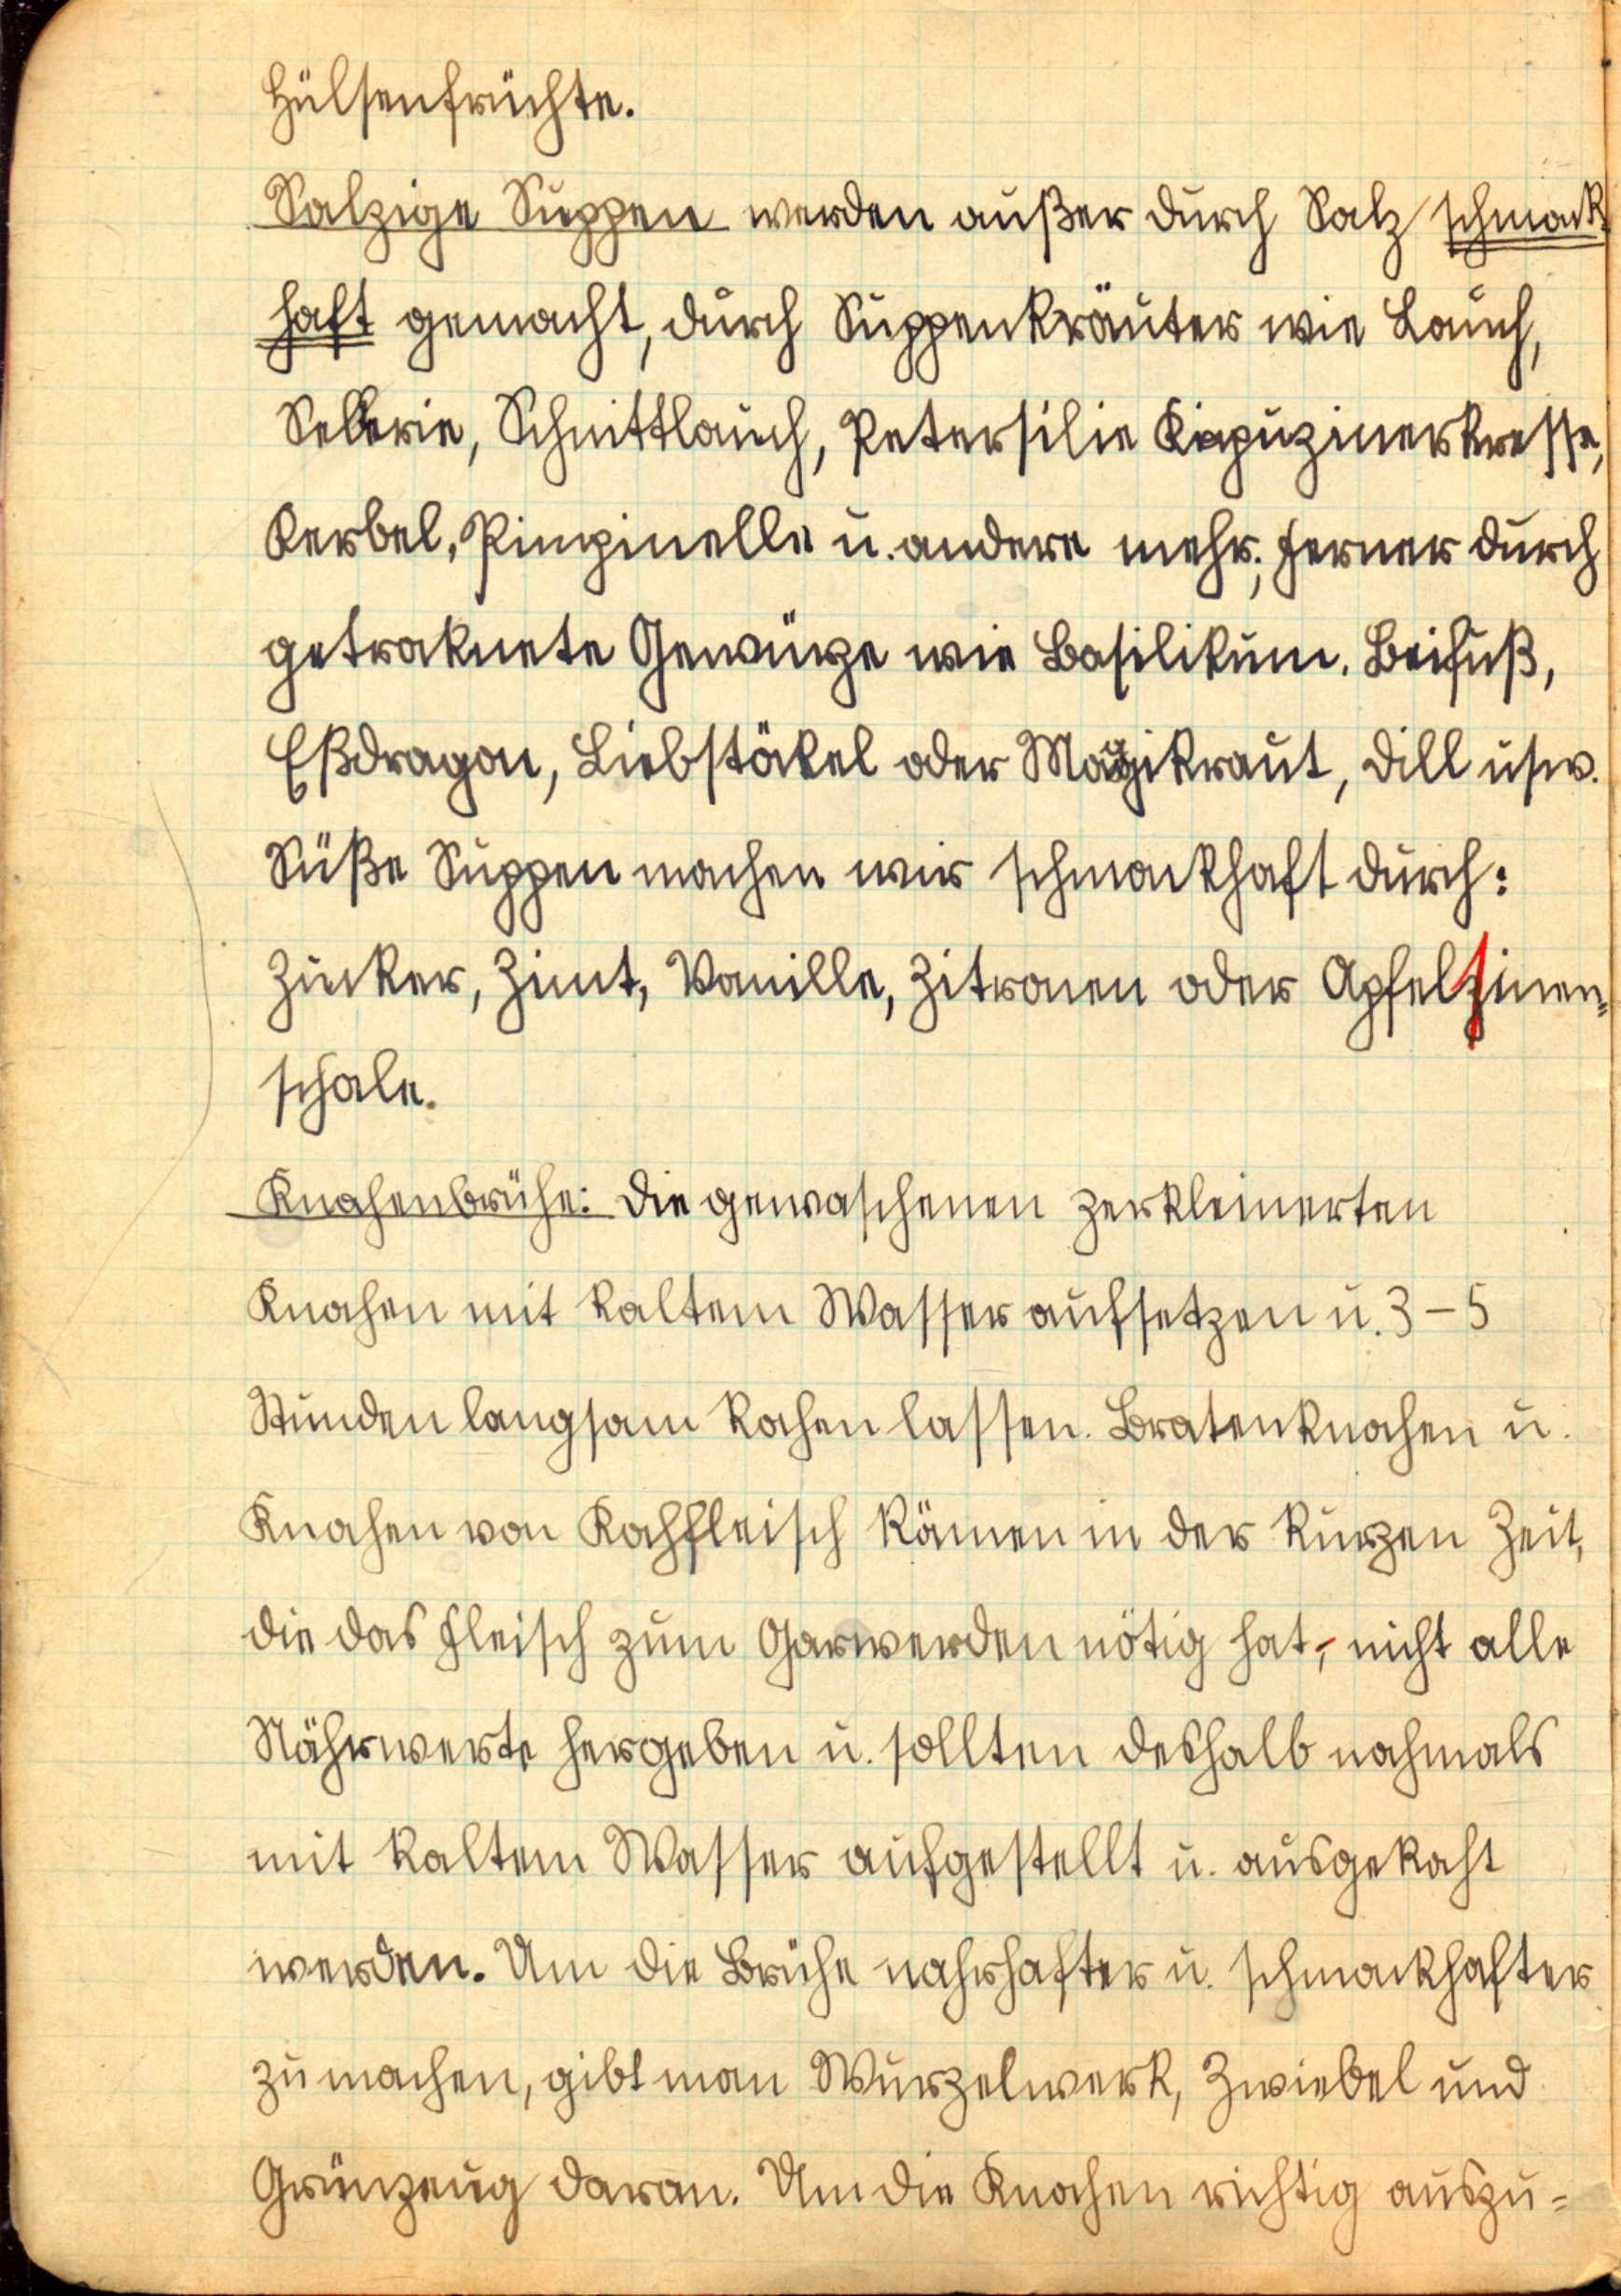 Hülsenfrüchte.
Salzige Suppen werden außer durch Salz schmack-
haft gemacht, durch Suppenkräuter wie Lauch,
Sellerie, Schnittlauch, Petersilie Kapuzinerkresse,
Kerbel, Pimpinelle u. andere mehr; ferner durch
getroknete Gewürze wie Basilikum, Beifuß,
Eßdragon, Liebstökel oder Maggikraut, Dill usw.
Süße Suppen machen wir schmackhaft durch:
Zucker, Zimt, Vanille, Zitronen oder Apfelsinen-
schale.
Knochenbrühe: Die gewaschenen zerkleinerten
Knochen mit kaltem Wasser aufsetzen u. 3 – 5
Stunden langsam kochen lassen. Bratenknochen u.
Knochen von Kochfleisch kömen in der kurzen Zeit,
die das Fleisch zum Garwerden nötig hat, nicht alle
Nährwerte hergeben u. sollten deshalb nochmals
mit kaltem Wasser aufgestellt u. ausgekocht
werden. Um die Brühe nahrhafter u. schmackhafter
zu machen, gibt man Wurzelwerk, Zwiebel und
Grünzeug daran. Um die Knochen richtig auszu-